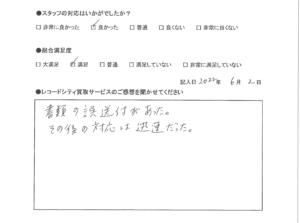 ●スタッフの対応はいかがでしたか?
□ 非常に良かった ☑ 良かった □ 普通 □ 良くない □ 非常に良くない
●総合満足度
□ 大満足 ☑ 満足 □ 普通 □ 満足していない □ 非常に満足していない
記入日 2022年 6月 2日
●レコードシティ買取サービスのご感想を聞かせてください
書類の誤送付があった。
その後の対応は迅速だった。